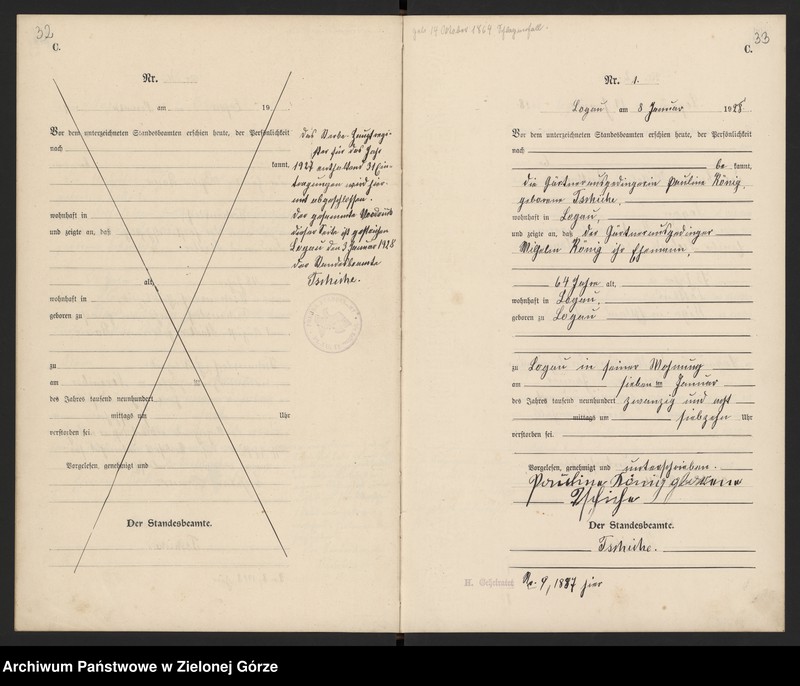 32
C.
Nr.
am 19
Vor dem unterzeichneten Standesbeamten erschien heute, der Persönlichkeit
nach
kannt,
wohnhaft in
und zeigte an, daß
alt,
wohnhaft in
geboren zu
zu
am ten
des Jahres tausend neunhundert
mittags um Uhr
verstorben sei.
Vorgelesen, genehmigt und
Der Standesbeamte.
Das Sterbe-Hauptregi-
ster für das Jahr
1927 enthaltend 31 Ein-
tragungen wird hier-
mit abgeschlossen.
Der gesammte Vordruck
dieser Seite ist gestrichen
Logau den 3 Januar 1928
Der Standesbeamte
Tschiche.
geb. 14 Oktober 1864
33
C.
Nr. 1.
Logau am 8 Januar 1928
Vor dem unterzeichneten Standesbeamten erschien heute, der Persönlichkeit
nach
be kannt,
die Gärtnerausgedingerin Pauline König,
geborene Tschiche,
wohnhaft in Logau,
und zeigte an, daß der Gärtnerausgedinger
Wilhelm König ihr Ehemann,
64 Jahre alt,
wohnhaft in Logau,
geboren zu Logau
zu Logau in seiner Wohnung
am sieben ten Januar
des Jahres tausend neunhundert zwanzig und acht
mittags um siebzehn Uhr
verstorben sei.
Vorgelesen, genehmigt und unterschrieben.
Pauline König geborene
Tschiche
Der Standesbeamte.
Tschiche.
H. Geheiratet Nr. 9, 1887 hier
Archiwum Państwowe w Zielonej Górze